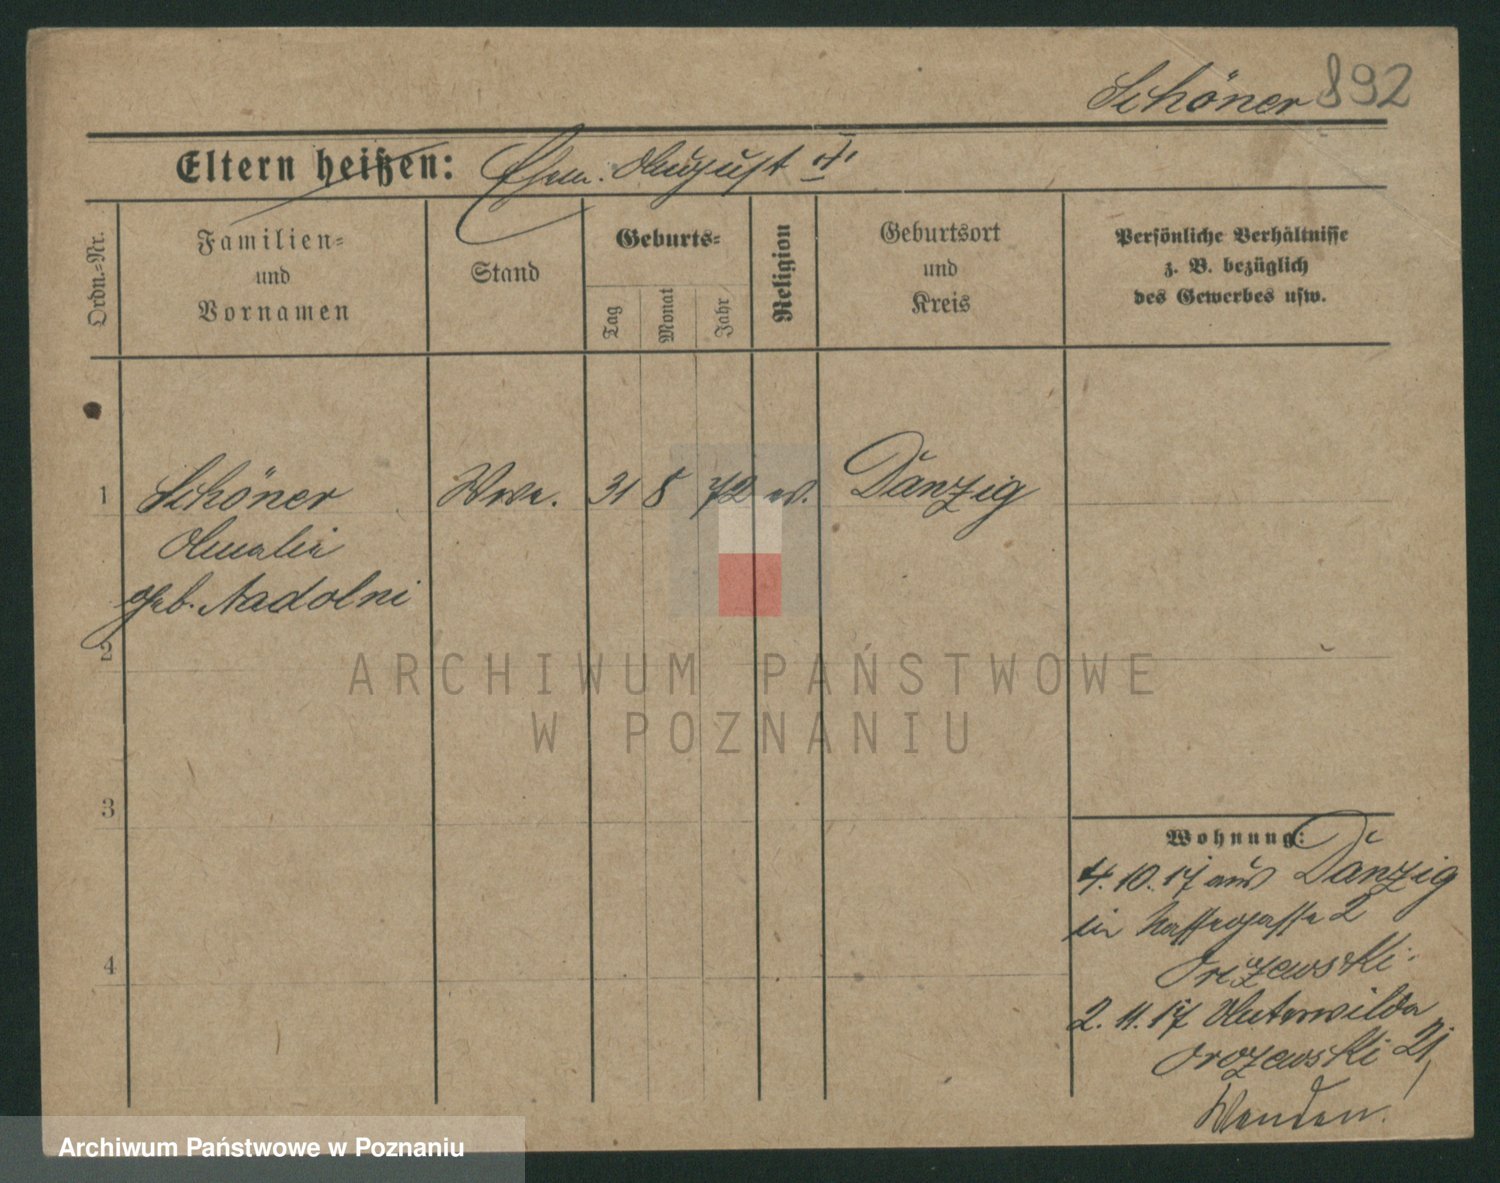 Schöner 892
Eltern heißen: Ehem. August †
Ordn.-Nr.
Familien-
und
Vornamen
Stand
Geburts-
Tag
Monat
Jahr
Religion
Geburtsort
und
Kreis
Persönliche Verhältnisse
z. B. bezüglich
des Gewerbes usw.
1 Schöner Wwe. 31 8 72 ev. Danzig
Amalie
geb. Nadolni
2
3
4
Wohnung:
4. 10. 17 aus Danzig
in 2
2. 11. 17 Unterwilda
21
Wenden!
ARCHIWUM PAŃSTWOWE
W POZNANIU
Archiwum Państwowe w Poznaniu